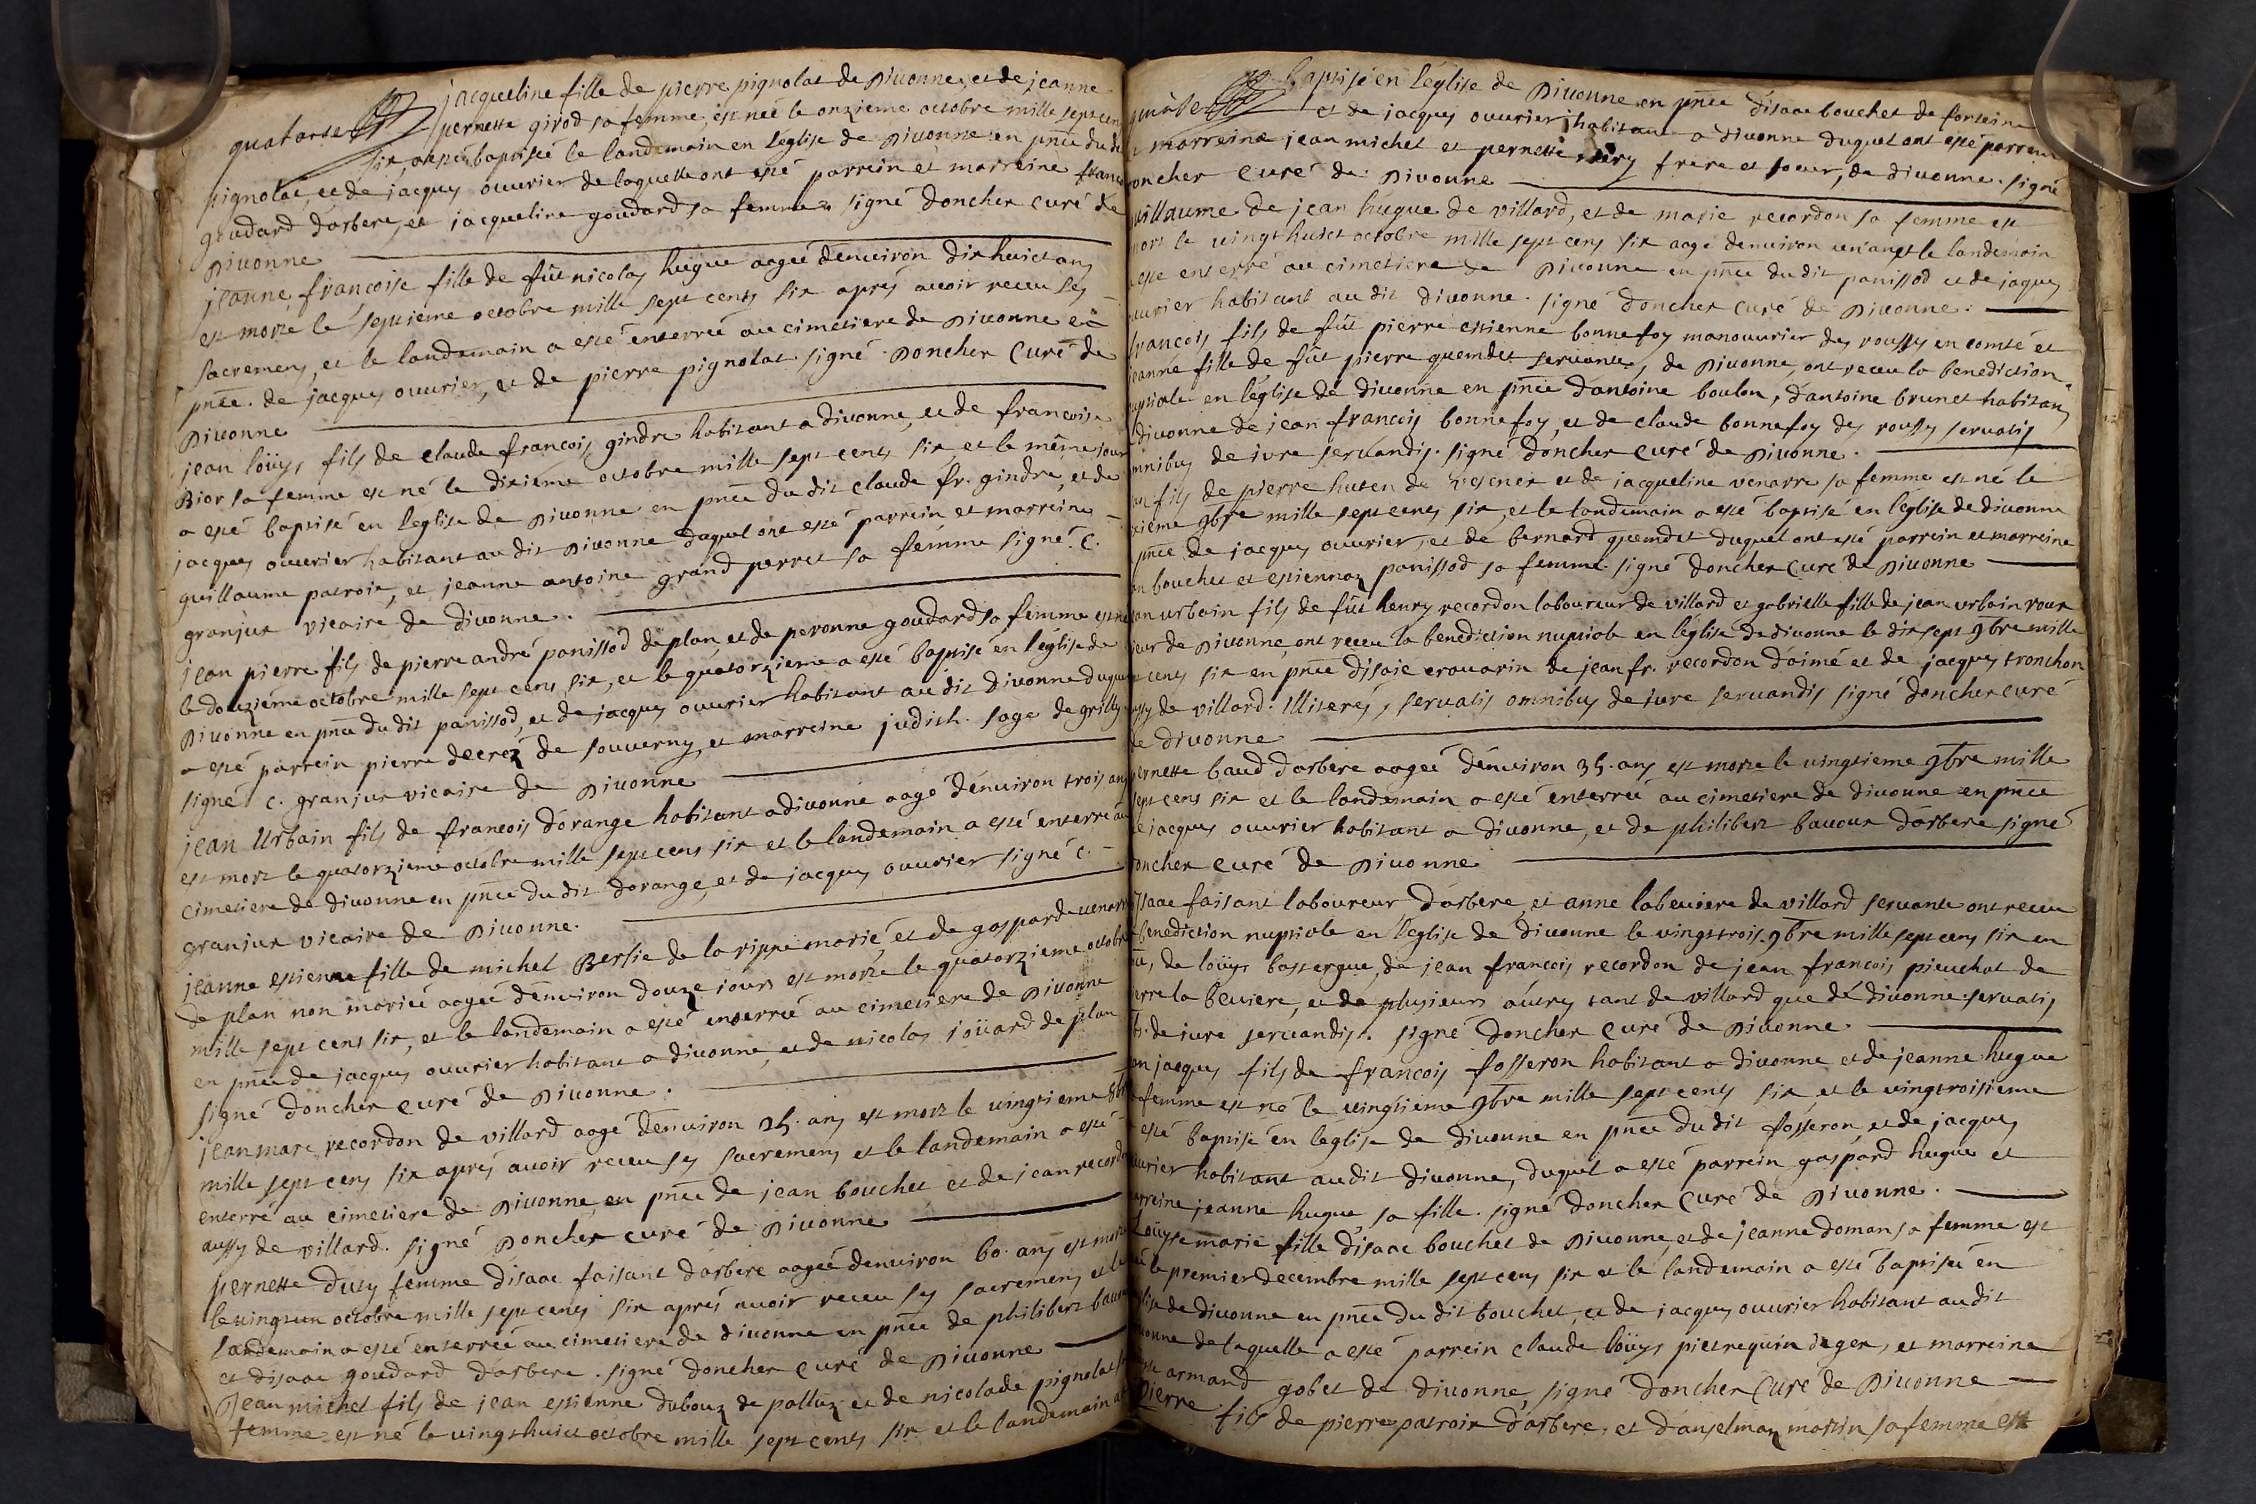 quatorse
jacqueline fille de pierre pignolat de Diuonne, et de jeanne
pernette girod sa femme, est née le onzieme octobre mille sept cen
six, a esté baptisée le landemain en l'église de Diuonne en pnce du di
pignolat, et de jacques ouurier de laquelle ont esté parrein et marreine franc
goudard d'arbere, et jacqueline goudard sa femme signé doncher curé de
Diuonne
jeanne francoise fille de fût nicolas hugue aagée denuiron dix huict ans
est morte le septieme octobre mille sept cents six apres auoir receu ses
sacremens, et le landemain a esté enterrée au cimetiere de Diuonne en
pnce. de jacques ouurier, et de pierre pignolat signé Doncher Curé de
Diuonne
jean loüys fils de claude francois gindre habitant a diuonne, et de francoise
Bior sa femme est né le dixieme octobre mille sept cents six et le même jour
a esté baptisé en l'eglise de Diuonne en pnce du dit claude fr. gindre, et de
jacques ouurier habitant au dit Diuonne duquel ont esté parrein et marreine
guillaume patroix, et jeanne antoine grand perret sa femme signé. C.
granjux vicaire de diuonne.
jean pierre fils de pierre andré panissod de plan et de peronne goudard sa femme est né
le douzième octobre mille sept cens six, et le quatorzieme a esté baptisé en l'église de
Diuonne en pnce du dit panissod, et de jacques ouurier habitant au dit Diuonne duquel
a esté parrein pierre decrez de souuerny, et marreine judich. sage de grilly
signé C. granjux vicaire de Diuonne
jean Urbain fils de francois dorange habitant a diuonne aagé denuiron trois ans
est mort le quatorzieme octobre mille sept cens six et le landemain a esté enterré au
cimetiere de diuonne en pnce du dit dorange, et de jacques ouurier signé C.
granjux vicaire de Diuonne.
jeanne estienne fille de michel Berlie de la rippe marié, et de gasparde uenarr
de plan non mariée aagée denuiron douze jours est morte le quatorzieme octobre
mille sept cens six, et le landemain a esté enterrée au cimetiere de Diuonne
en pnce de jacques ouurier habitant a diuonne, et de nicolas joüard de plan
signé doncher curé de Diuonne.
jean marc recordon de villard aagé denuiron 25. ans est mort le vingtieme 8bre
mille sept cens six apres auoir receu ses sacremens et le landemain a esté
enterré au cimetiere de Diuonne, en pnce de jean bouchet et de jean recordo
aussy de villard. signé Doncher curé de Diuonne
pernette ducy femme disaac faisant d'arbere aagée denuiron 60. ans est morte
le vingt un octobre mille sept cens six après auoir receu ses sacremens et le
landemain a esté enterrée au cimetiere de diuonne en pnce de philibert bauou
et disaac goudard d'arbere. signé doncher curé de Diuonne
Jean michel fils de jean estienne dubouz de pattuz et de nicolade pignolat sa
femme est né le vingt huict octobre mille sept cents six et le landemain a
quinse
baptisé en l'église de Diuonne en pnce disaac bouchet de forteine
et de jacques ouurier habitant a diuonne duquel ont esté parrein
marreine jean michel et pernette mery frere et soeur, de diuonne. signé
oncher Curé de Diuonne
uillaume de jean hugue de villard, et de marie recordon sa femme est
mort le vingt huict octobre mille sept cens six aagé denuiron un an et le landemain
esté enterré au cimetiere de Diuonne en pnce du dit panissod et de jaques
uurier habitant au dit diuonne. signé doncher curé de Diuonne.
francois fils de fût pierre estienne bonnefoy manouurier des rousses en comté et
jeanne fille de fût pierre quemdet seruante, de Diuonne, ont receu la benediction
uptiale en l'église de diuonne en pnce dantoine boulon, dantoine brunet habitans
diuonne de jean francois bonnefoy, et de claude bonnefoy des rousses servatis
mnibus de iure seruandis. signé doncher curé de Diuonne.
an fils de pierre huten de Vesenex et de jacqueline venarre sa femme est né le
xieme 9bre mille sept cens six, et le landemain a esté baptisé en l'église de diuonne
pnce de jacques ouurier, et de bernard quemdet duquel ont esté parrein et marreine
an bouchet et estiennaz panissod sa femme. signé doncher Curé de Diuonne
jean urbain fils de fût henry recordon laboureur de villard et gabrielle fille de jean urbain roux
ieur de Diuonne, ont receu la benediction nuptiale en l'église de diuonne le dix sept 9bre mille
t cents six en pnce disaie crouarin de jean fr. recordon d'aimé et de jacques tronchon
ussy de villard. Illiterés, servatis omnibus de iure seruandis signé doncher curé
de diuonne
pernette baud d'arbere aagée denuiron 35. ans est morte le vingtieme 9bre mille
sept cens six et le landemain a esté enterrée au cimetiere de diuonne en pnce
de jacques ouurier habitant a diuonne, et de philibert bauoux d'arbere signé
oncher curé de Diuonne
Isaac faisant laboureur d'arbere, et anne labeuiere de villard seruante ont receu
benediction nuptiale en l'église de diuonne le vingt trois. 9bre mille sept cens six en
ce, de loüys bassergue, de jean francois recordon de jean francois pieuchat de
erre la beuiere, et de plusieurs autres tant de villard que de diuonne servatis
b. de iure seruandis. signé doncher Curé de Diuonne.
an jacques fils de francois fosseron habitant a diuonne et de jeanne hugue
femme est né le vingtieme 9bre mille sept cents six et le vingtroisieme
esté baptisé en l'eglise de diuonne en pnce du dit fosseron, et de jacques
uurier habitant audit diuonne, duquel a esté parrein gaspard hugue et
arreine jeanne hugue, sa fille. signé doncher Curé de Diuonne.
Loüyse marie fille disaac bouchet de Diuonne, et de jeanne doman sa femme est
ée le premier decembre mille sept cens six et le landemain a esté baptisée en
glise de diuonne en pnce du dit bouchet, et de jacques ouurier habitant au dit
iuonne de laquelle a esté parrein claude loüys pietrequin de gex, et marreine
armand gobet de diuonne, signé doncher Curé de Diuonne
Pierre fils de pierre patroix d'arbere, et d'anselmaz martin sa femme est